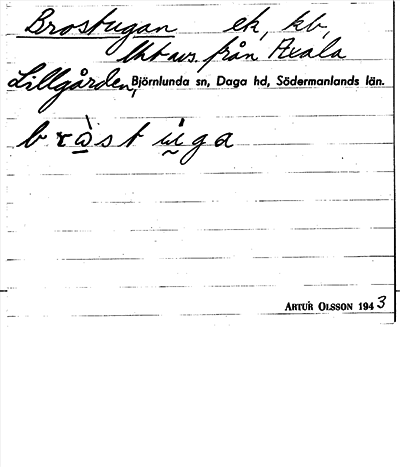 Brostugan ek, kb,
Uht avs. från Axala
Lillgården, Björnlunda sn, Daga hd, Södermanlands län.
bròstúga
ARTUR OLSSON 1943